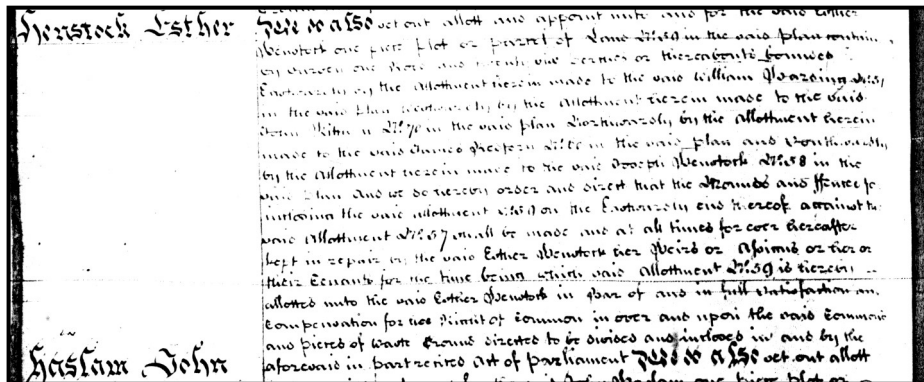 Henstock Esther We do also set out allott and appoint unto and for the said Esther
Henstock one piece plot or parcel of Land No. 59 in the said plan contain
by survey one Rood and twenty one perches or thereabouts bounded
Eastwardly by the Allotment herein made to the said William Harding No. 57
in the said plan Westwardly by the Allotment herein made to the said
John No. 70 in the said plan Northwardly by the Allotment herein
made to the said James No. 60 in the said plan and Southwardly
by the Allotment herein made to the said Joseph Henstock No. 58 in the
said plan And we do hereby order and direct that the Mounds and ffences for
inclosing the said allotment No. 59 on the Eastwardly end thereof against the
said Allottment No. 57 shall be made and at all times for ever hereafter
kept in repair by the said Esther Henstock her Heirs or Assigns or her or
their Tenants for the time being which said Allottment No. 59 is hereby
allotted unto the said Esther Henstock in Bar of and in full satisfaction an
Compensation for her Right of Common in over and upon the said Commons
and pieces of waste Ground directed to be divided and inclosed in and by the
Haslam John aforesaid in part recited Act of Parliament We do also set out allott
one piece plot or